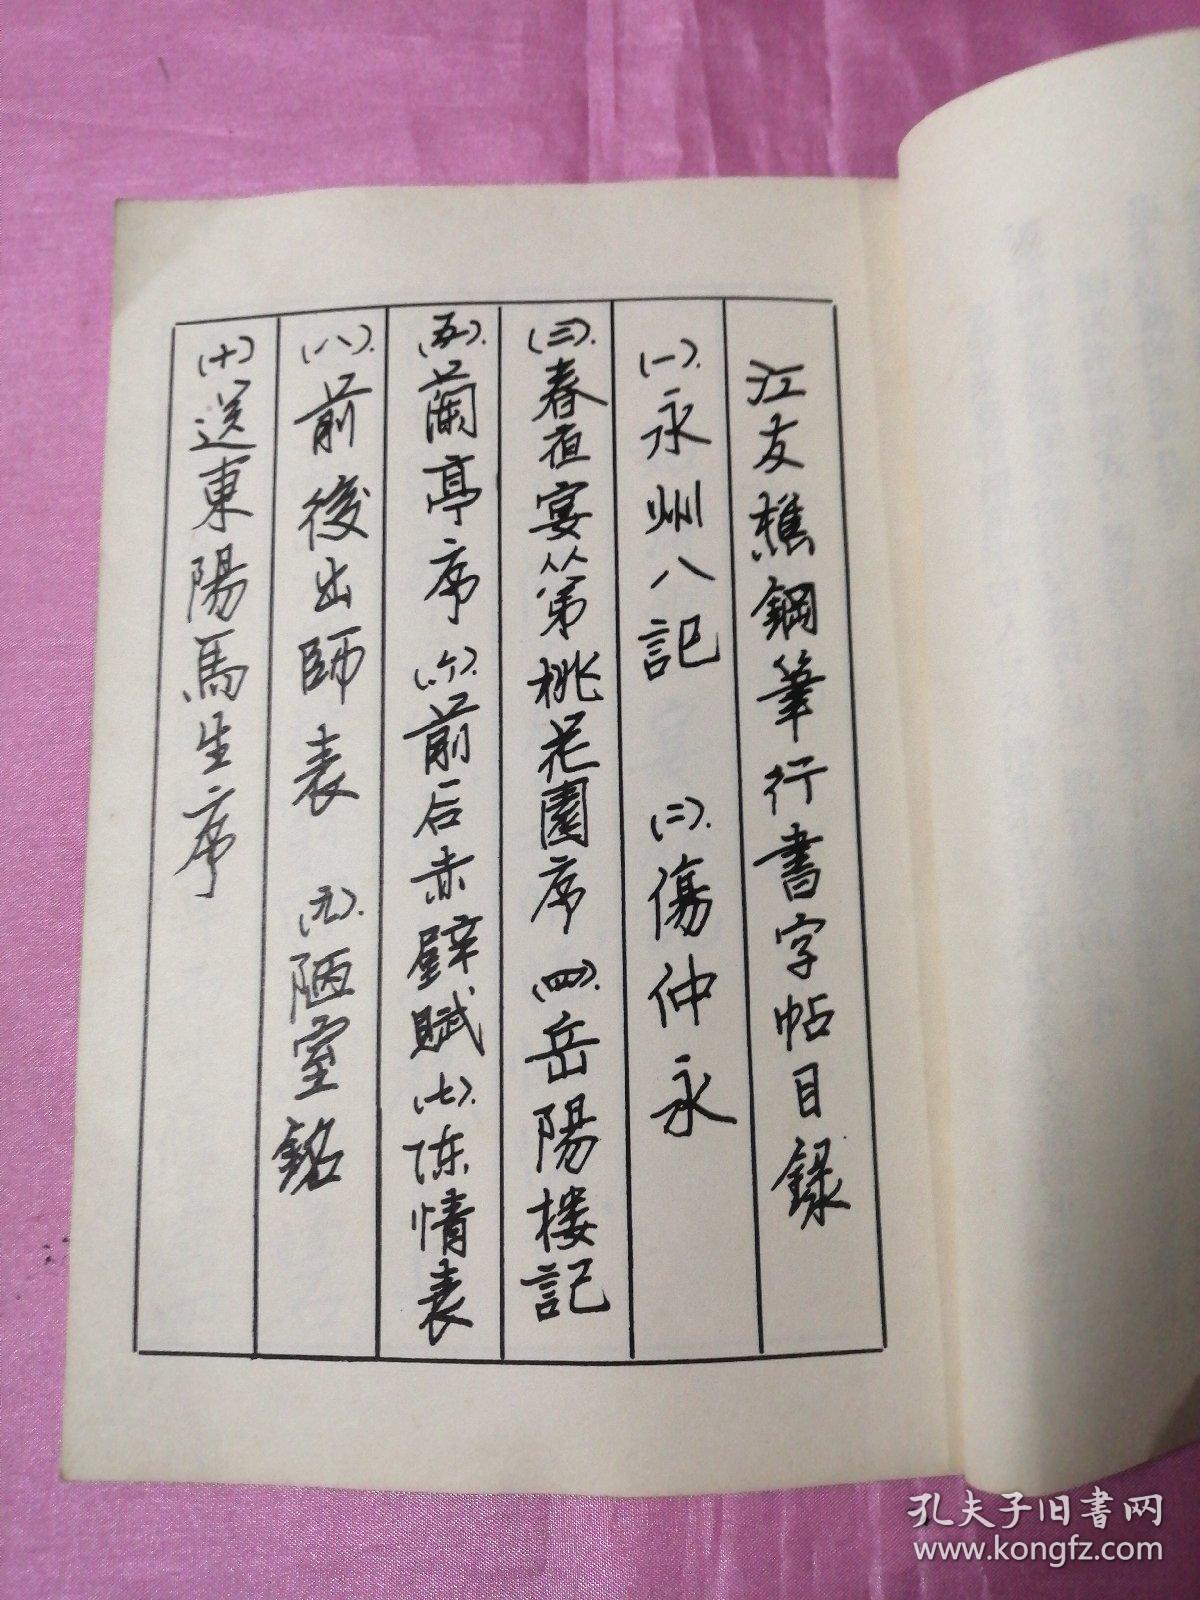 江友樵鋼筆行書字帖目録
(一).永州八記 (二).傷仲永
(三).春夜宴从第桃花園序 (四).岳陽楼記
(五).蘭亭序 (六).前后赤壁賦 (七).陈情表
(八).前後出師表 (九).陋室銘
(十)送東陽馬生序
孔夫子旧书网
www.kongfz.com